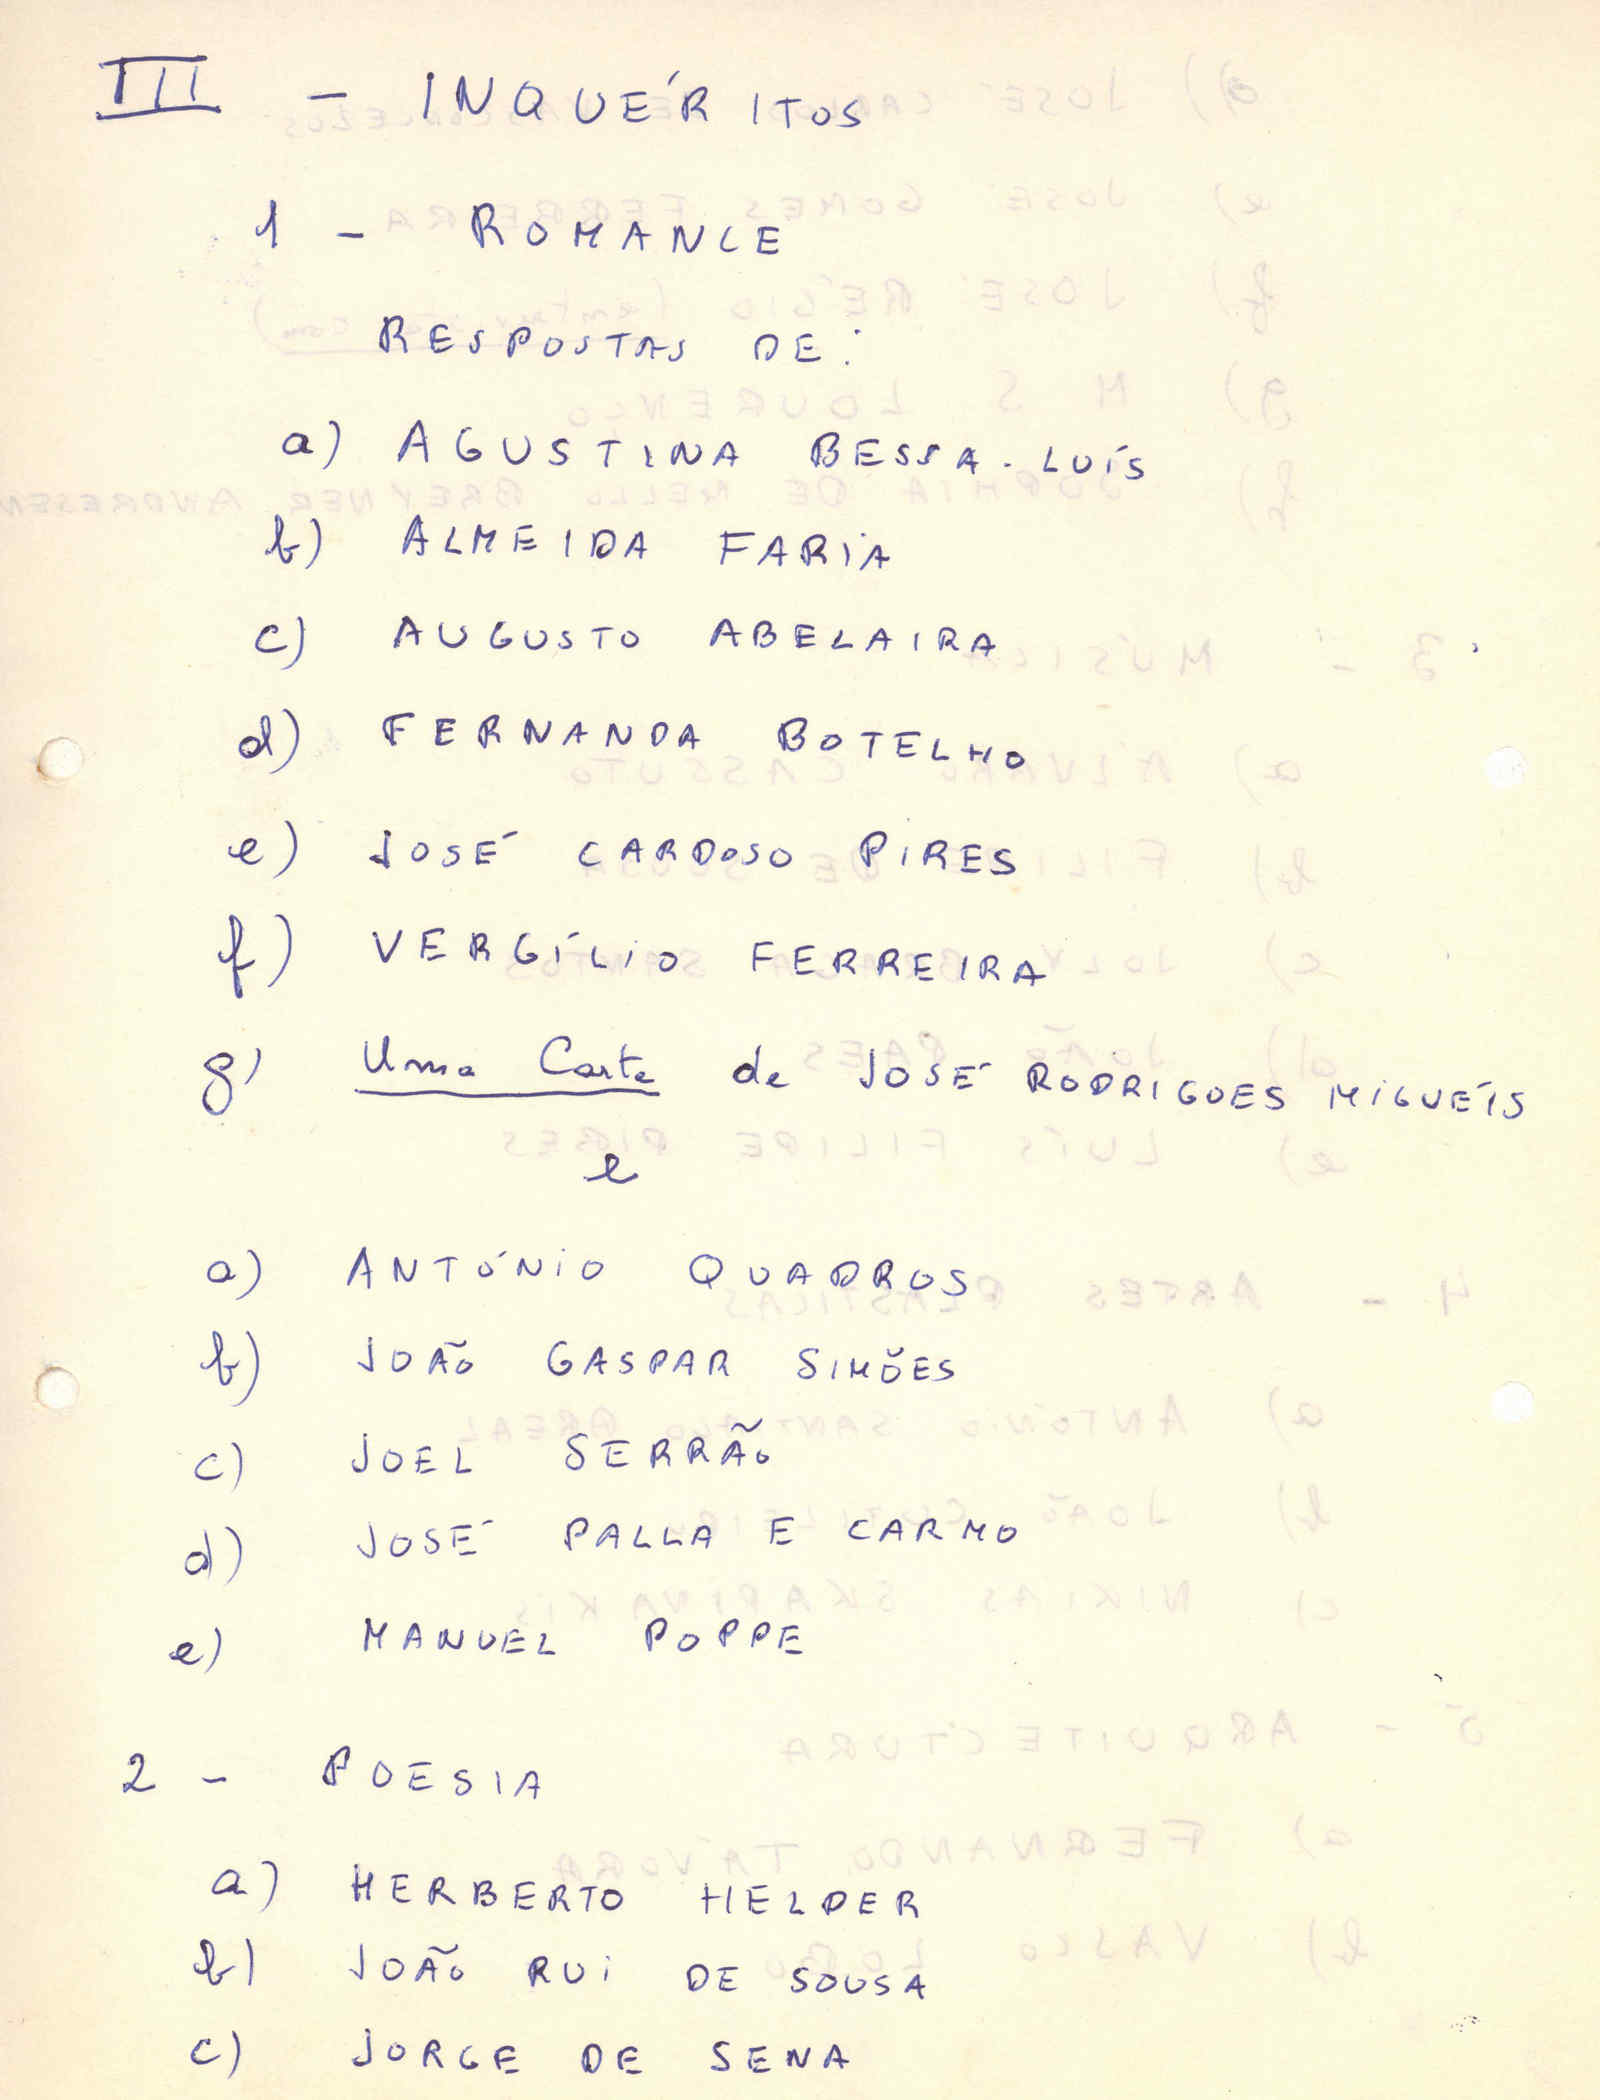 III - INQUÉRITOS
1 - ROMANCE
RESPOSTAS DE:
a) AGUSTINA BESSA-LUÍS
b) ALMEIDA FARIA
c) AUGUSTO ABELAIRA
d) FERNANDA BOTELHO
e) JOSÉ CARDOSO PIRES
f) VERGÍLIO FERREIRA
g) Uma Carta de JOSÉ RODRIGUES MIGUÉIS
e
a) ANTÓNIO QUADROS
b) JOÃO GASPAR SIMÕES
c) JOEL SERRÃO
d) JOSÉ PALLA E CARMO
e) MANUEL POPPE
2 - POESIA
a) HERBERTO HELDER
b) JOÃO RUI DE SOUSA
c) JORGE DE SENA